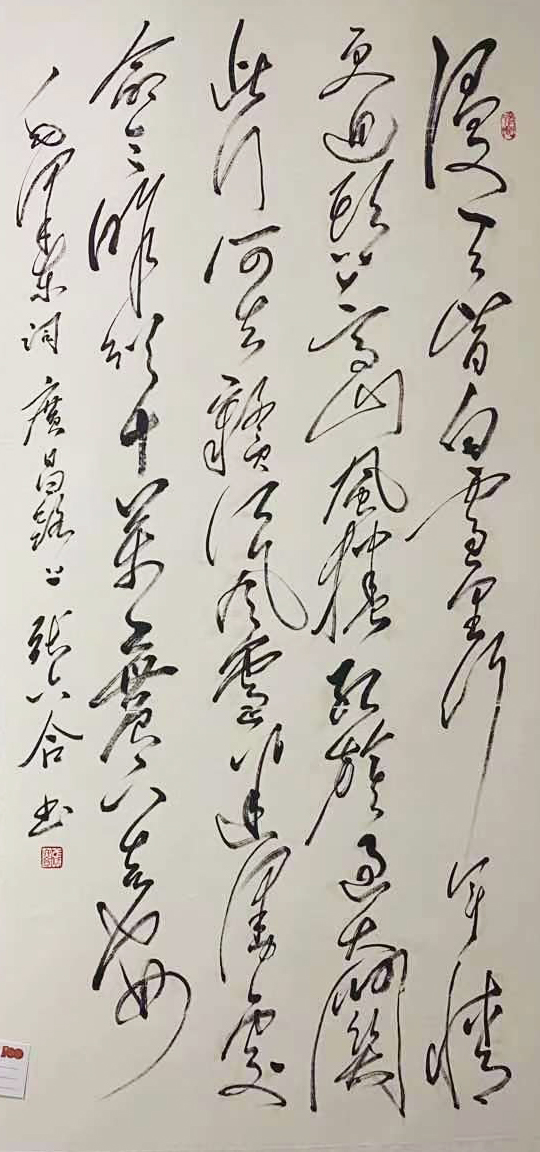 漫天皆白雪里行军情
更迫头上高山風捲红旗過大關
此行何去赣江风雪迷漫处
命令昨颁十萬工農下吉安
毛泽东词 廣昌路上 张六合书
100